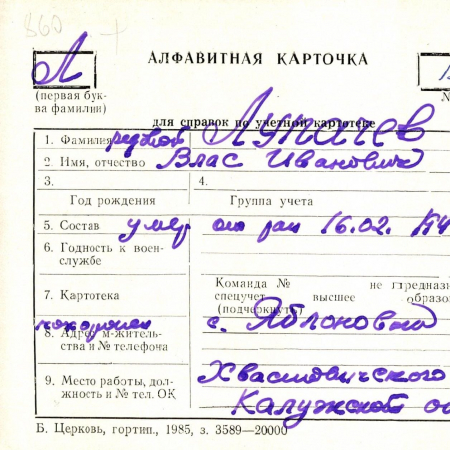 360 +
АЛФАВИТНАЯ КАРТОЧКА
Л
(первая бук-
ва фамилии)
№
для справок по учетной картотеке
1. Фамилия рядовой Лупачев
2. Имя, отчество Влас Иванович
3.
4.
Год рождения
Группа учета
5. Состав умер от ран 16.02.
6. Годность к воен-
службе
7. Картотека
Команда № не предназн
спецучет, высшее образо
(подчеркнуть)
похоронен с. Яблоковый
8. Адрес м-жительь-
ства и № телефона
9. Место работы, дол-
жность и № тел. ОК
Хвастовичского
Калужской об
Б. Церковь, гортип., 1985, з. 3589—20000